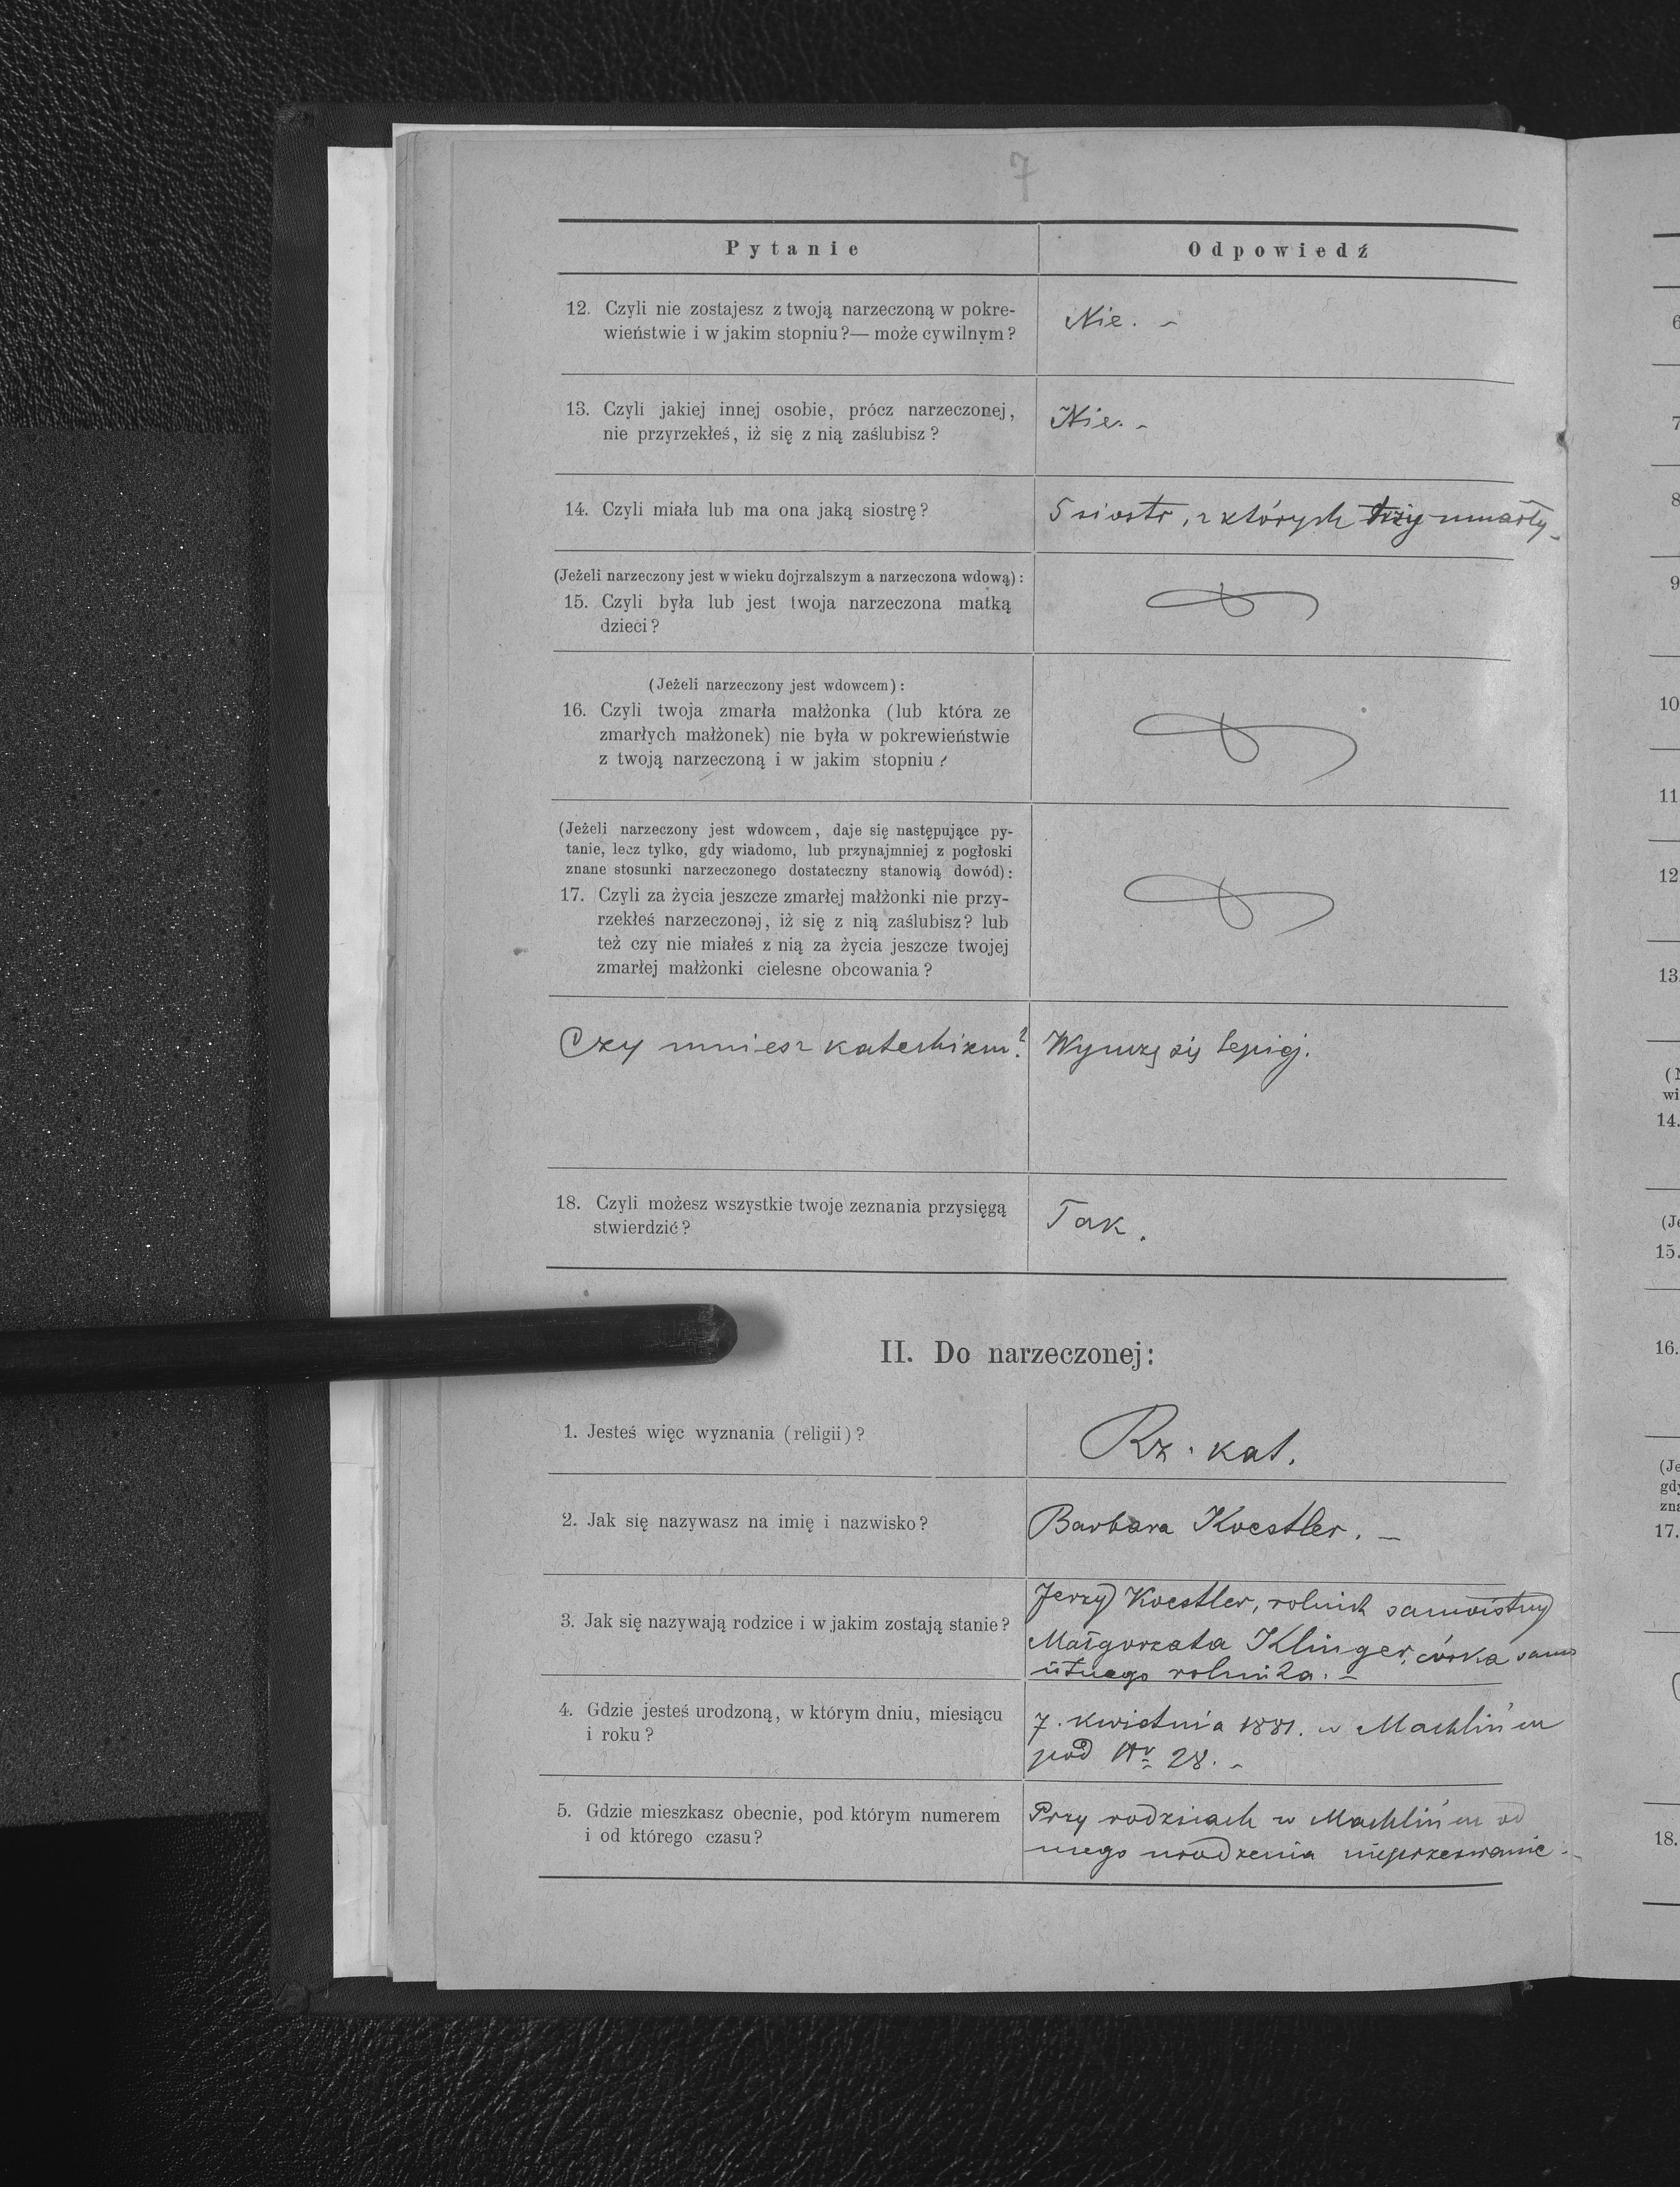 7
Pytanie
Odpowiedź
12. Czyli nie zostajesz z twoją narzeczoną w pokre-
wieństwie i w jakim stopniu?— może cywilnym?
Nie. -
13. Czyli jakiej innej osobie, prócz narzeczonej,
nie przyrzekłeś, iż się z nią zaślubisz?
Nie. -
14. Czyli miała lub ma ona jaką siostrę?
5 siostr, z których trzy umarły.
(Jeżeli narzeczony jest w wieku dojrzalszym a narzeczona wdową):
15. Czyli była lub jest twoja narzeczona matką
dzieci?
(Jeżeli narzeczony jest wdowcem):
16. Czyli twoja zmarła małżonka (lub która ze
zmarłych małżonek) nie była w pokrewieństwie
z twoją narzeczoną i w jakim stopniu?
(Jeżeli narzeczony jest wdowcem, daje się następujące py-
tanie, lecz tylko, gdy wiadomo, lub przynajmniej z pogłoski
znane stosunki narzeczonego dostateczny stanowią dowód):
17. Czyli za życia jeszcze zmarłej małżonki nie przy-
rzekłeś narzeczonej, iż się z nią zaślubisz? lub
też czy nie miałeś z nią za życia jeszcze twojej
zmarłej małżonki cielesne obcowania?
Czy umiesz katechizm?
Wyuczę się lepiej.
18. Czyli możesz wszystkie twoje zeznania przysięgą
stwierdzić?
Tak.
II. Do narzeczonej:
1. Jesteś więc wyznania (religii)?
Rz. kat.
2. Jak się nazywasz na imię i nazwisko?
Barbara Koestler. —
3. Jak się nazywają rodzice i w jakim zostają stanie?
Jerzy Koestler, rolnik samoistny
Małgorzata Klinger, córka samo
istnego rolnika. -
4. Gdzie jesteś urodzoną, w którym dniu, miesiącu
i roku?
7. kwietnia 1881. w Machlińcu
pod Nr 28. -
5. Gdzie mieszkasz obecnie, pod którym numerem
i od którego czasu?
Przy rodzicach w Machlińcu od
mego urodzenia nieprzerwanie. -
6
7
8
9
10
11
12
13.
wi
14.
(Je
15.
16.
(Je
gdy
zna
17.
18.